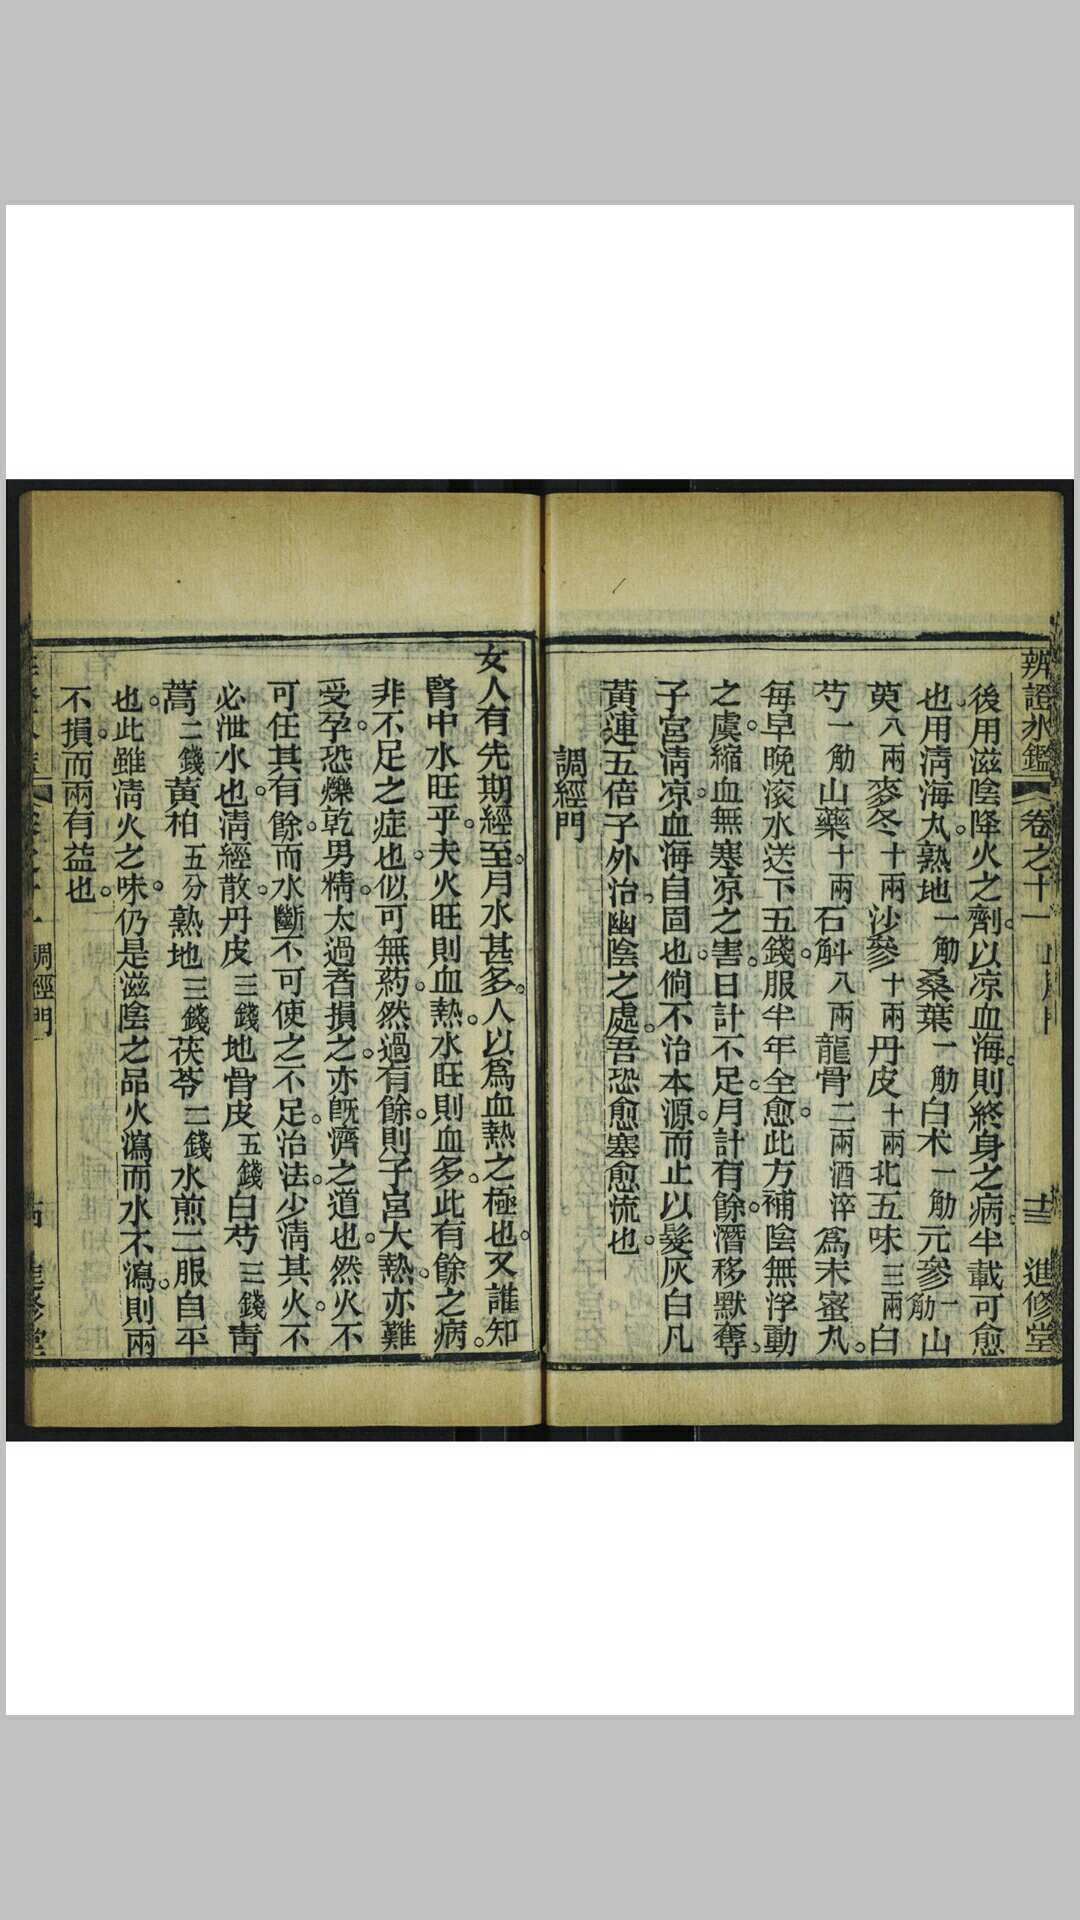 辨證氷鑑 卷之十一 十三 進修堂
後用滋陰降火之劑。以凉血海。則終身之病。半載可愈
也。用清海丸。熟地一觔桑葉一觔白术一觔元參一觔山
萸八兩麥冬十兩沙參十兩丹皮十兩北五味三兩白
芍一觔山藥十兩石斛八兩龍骨二兩酒淬為末蜜丸。
每早晚滾水送下五錢。服半年全愈。此方補陰無浮動
之虞。縮血無寒凉之害。日計不足。月計有餘。潛移默奪。
子宮清凉。血海自固也。倘不治本源。而止以髮灰白凡
黃連五倍子外治。幽陰之處。吾恐愈塞愈流也。
調經門
女人有先期經至。月水甚多。人以為血熱之極也。又誰知
腎中水旺乎。夫火旺則血熱。水旺則血多。此有餘之病。
非不足之症也。似可無葯。然過有餘。則子宮大熱。亦難
受孕。恐爍乾男精。太過者損之。亦旣濟之道也。然火不
可任其有餘。而水斷不可使之不足。治法。少清其火。不
必泄水也。清經散。丹皮三錢地骨皮五錢白芍三錢靑
蒿二錢黃柏五分熟地三錢茯苓二錢水煎二服自平
也。此雖清火之味。仍是滋陰之品火瀉而水不瀉。則兩
不損。而兩有益也。
調經門